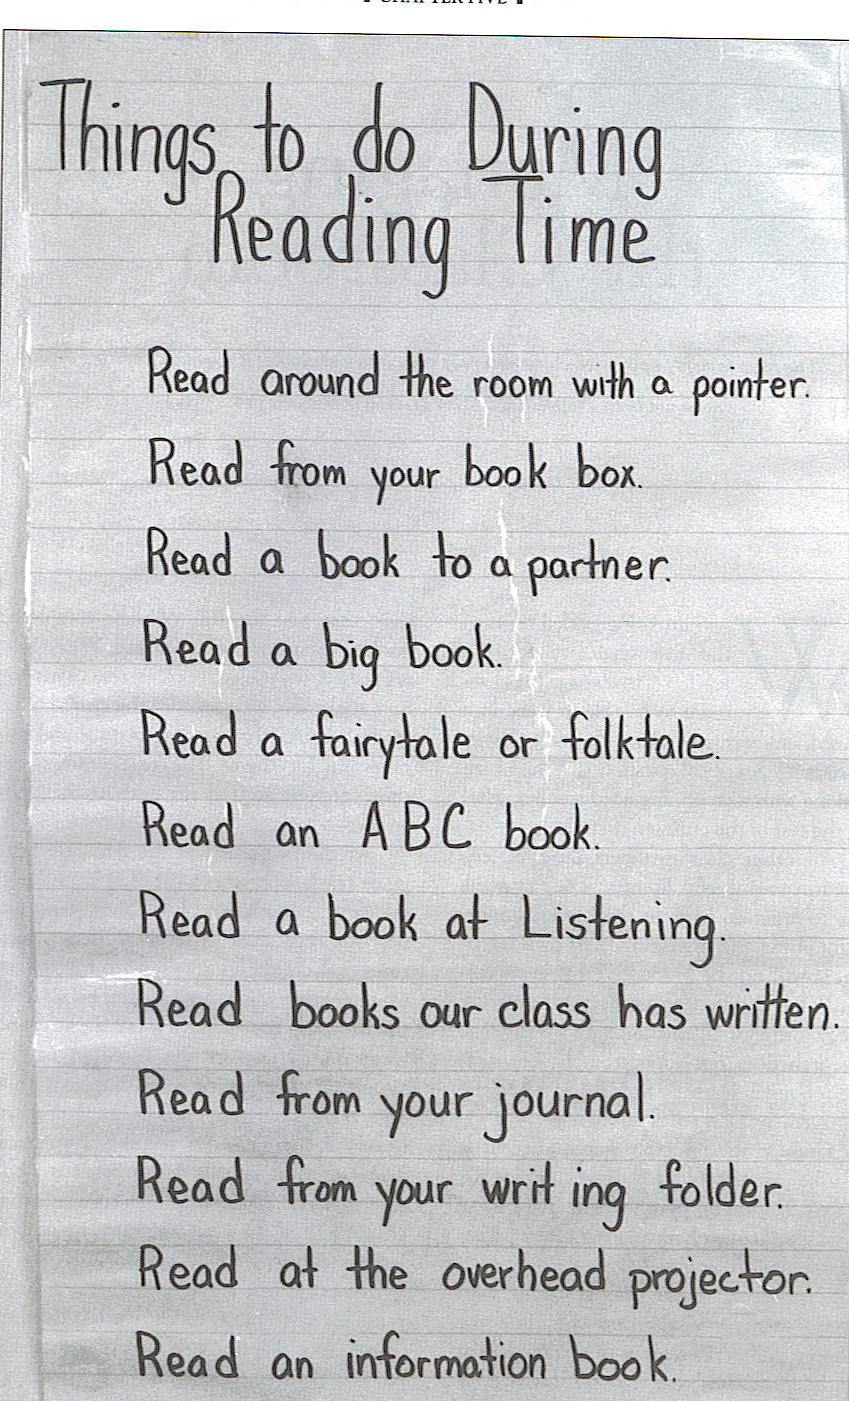 Things to do During
Reading Time
Read around the room with a pointer.
Read from your book box.
Read a book to a partner.
Read a big book.
Read a fairytale or folktale.
Read an ABC book.
Read a book at Listening.
Read books our class has written.
Read from your journal.
Read from your writing folder.
Read at the overhead projector.
Read an information book.